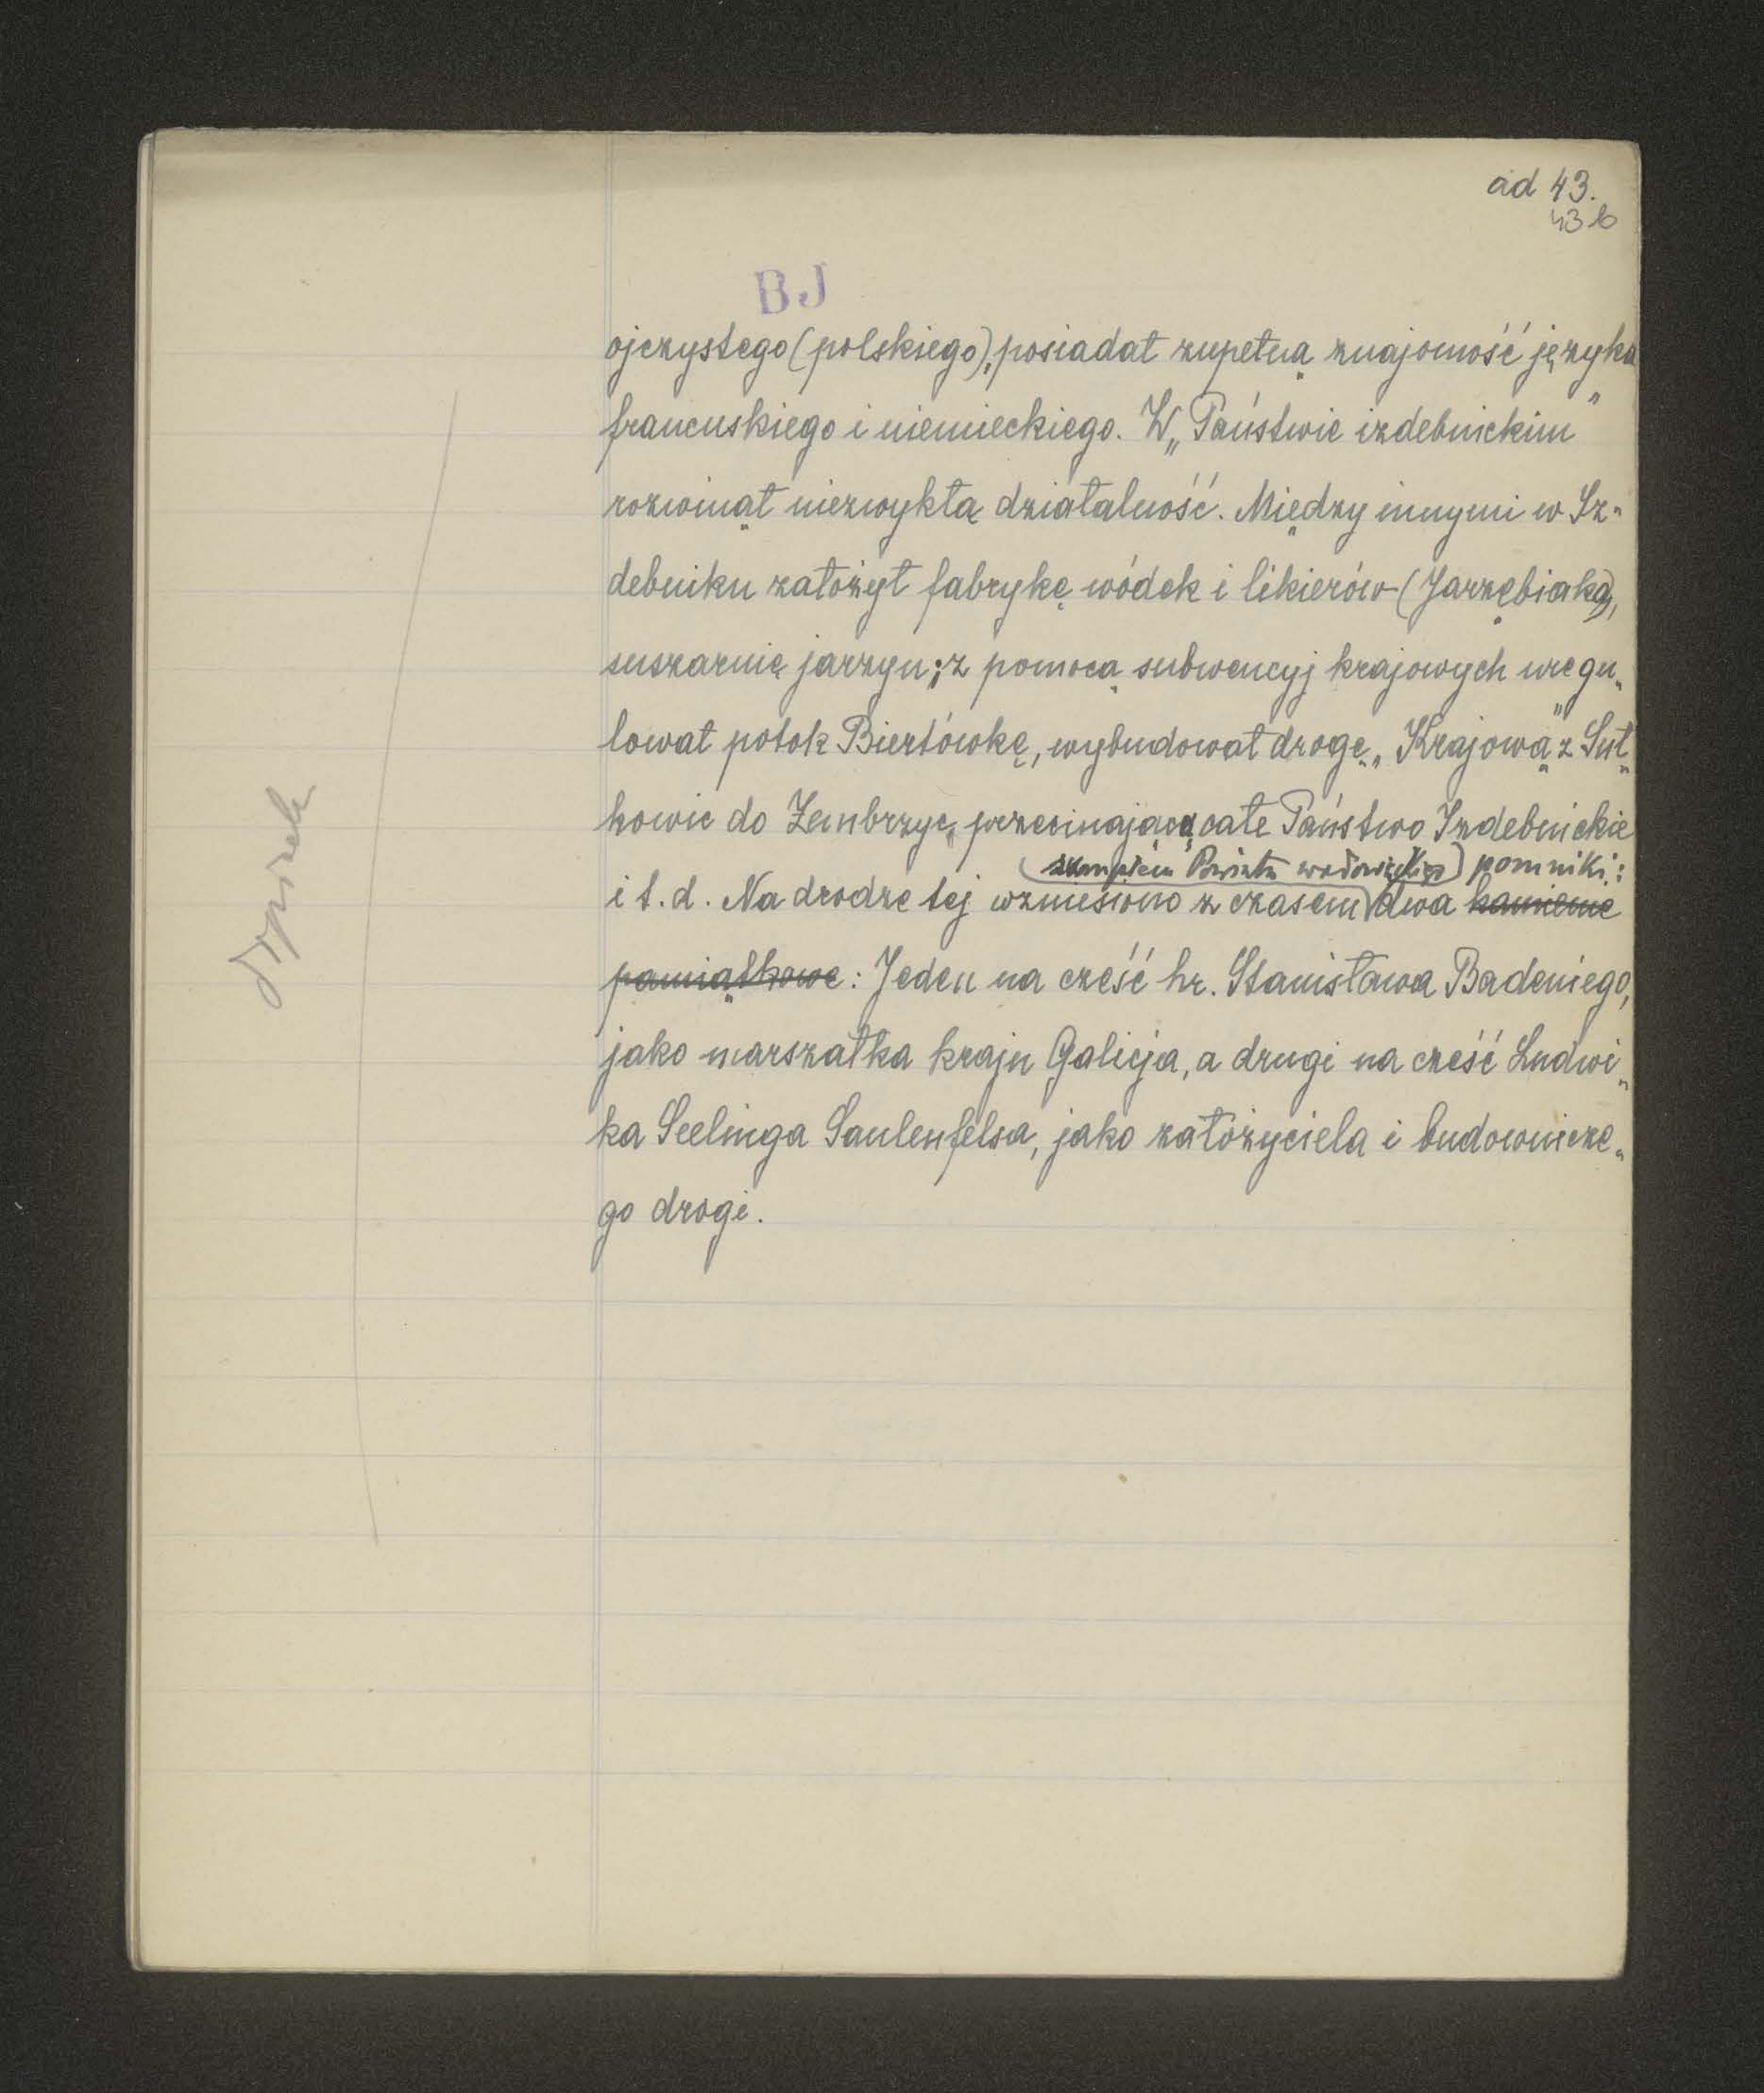 ad 43.
43 b
BJ
ojczystego (polskiego), posiadał zupełną znajomość języka
francuskiego i niemieckiego. W „Państwie izdebnickim"
rozwinął niezwykłą działalność. Między innymi w Iz-
debniku założył fabrykę wódek i likierów (Jarzębiaka),
suszarnię jarzyn; z pomocą subwencyj krajowych uregu-
lował potok Biertówkę, wybudował drogę „Krajową" z Suł-
kowic do Zembrzyc, przecinającą całe Państwo Izdebnickie
sumptem Powiatu wadowickiego) pomniki:
i t. d. Na drodze tej wzniesiono z czasem dwa kamienie
pamiątkowe: Jeden na cześć hr. Stanisława Badeniego,
jako marszałka kraju Galicja, a drugi na cześć Ludwi-
ka Seelinga Saulenfelsa, jako założyciela i budownicze-
go drogi.
dopisek